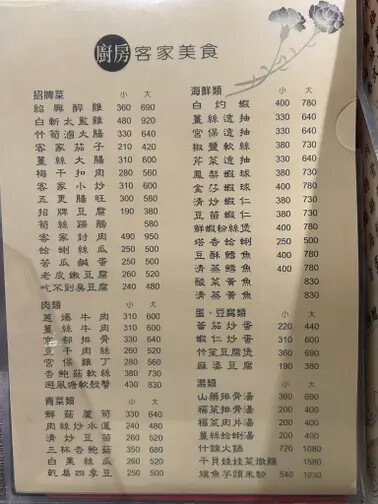 廚房 客家美食
招牌菜 小 大
紹興醉雞 360 690
白斬太監雞 480 920
竹筍滷大腸 330 640
客家茄子 210 420
薑絲大腸 310 600
梅干扣肉 280 560
客家小炒 310 600
五更腸旺 300 580
招牌豆腐 190 380
筍絲蹄膀 580
客家封肉 490 950
蛤蜊絲瓜 250 500
苦瓜鹹蛋 250 500
老皮嫩豆腐 260 520
吃不到臭豆腐 240 480
肉類 小 大
蔥爆牛肉 310 600
薑絲牛肉 310 600
京都排骨 330 640
豆干肉絲 260 520
宮保雞丁 280 560
杏鮑菇軟絲 380 730
避風塘軟殼蟹 430 830
青菜類 小 大
鮮菇蘆筍 330 640
肉絲炒水蓮 240 480
清炒豆苗 260 520
三杯杏鮑菇 350 680
白果絲瓜 260 520
乾扁四季豆 250 500
海鮮類 小 大
白灼蝦 400 780
薑絲透抽 330 640
宮保透抽 330 640
椒鹽軟絲 380 730
芹菜透抽 330 640
鳳梨蝦球 380 730
金莎蝦球 380 730
清炒蝦仁 380 730
豆苗蝦仁 380 730
鮮蝦粉絲煲 400 780
塔香蛤蜊 250 500
豆酥鱈魚 400 780
清蒸鱈魚 400 780
酸菜黃魚 830
清蒸黃魚 830
蛋、豆腐類 小 大
蕃茄炒蛋 220 440
蝦仁炒蛋 310 600
竹笙豆腐煲 360 690
麻婆豆腐 190 380
湯類 小 大
山藥排骨湯 360 690
福菜排骨湯 200 400
福菜肉片湯 200 400
薑絲蛤蜊湯 200 400
什錦火鍋 720 1080
干貝娃娃菜燉雞 1580
旗魚芋頭米粉 540 1030